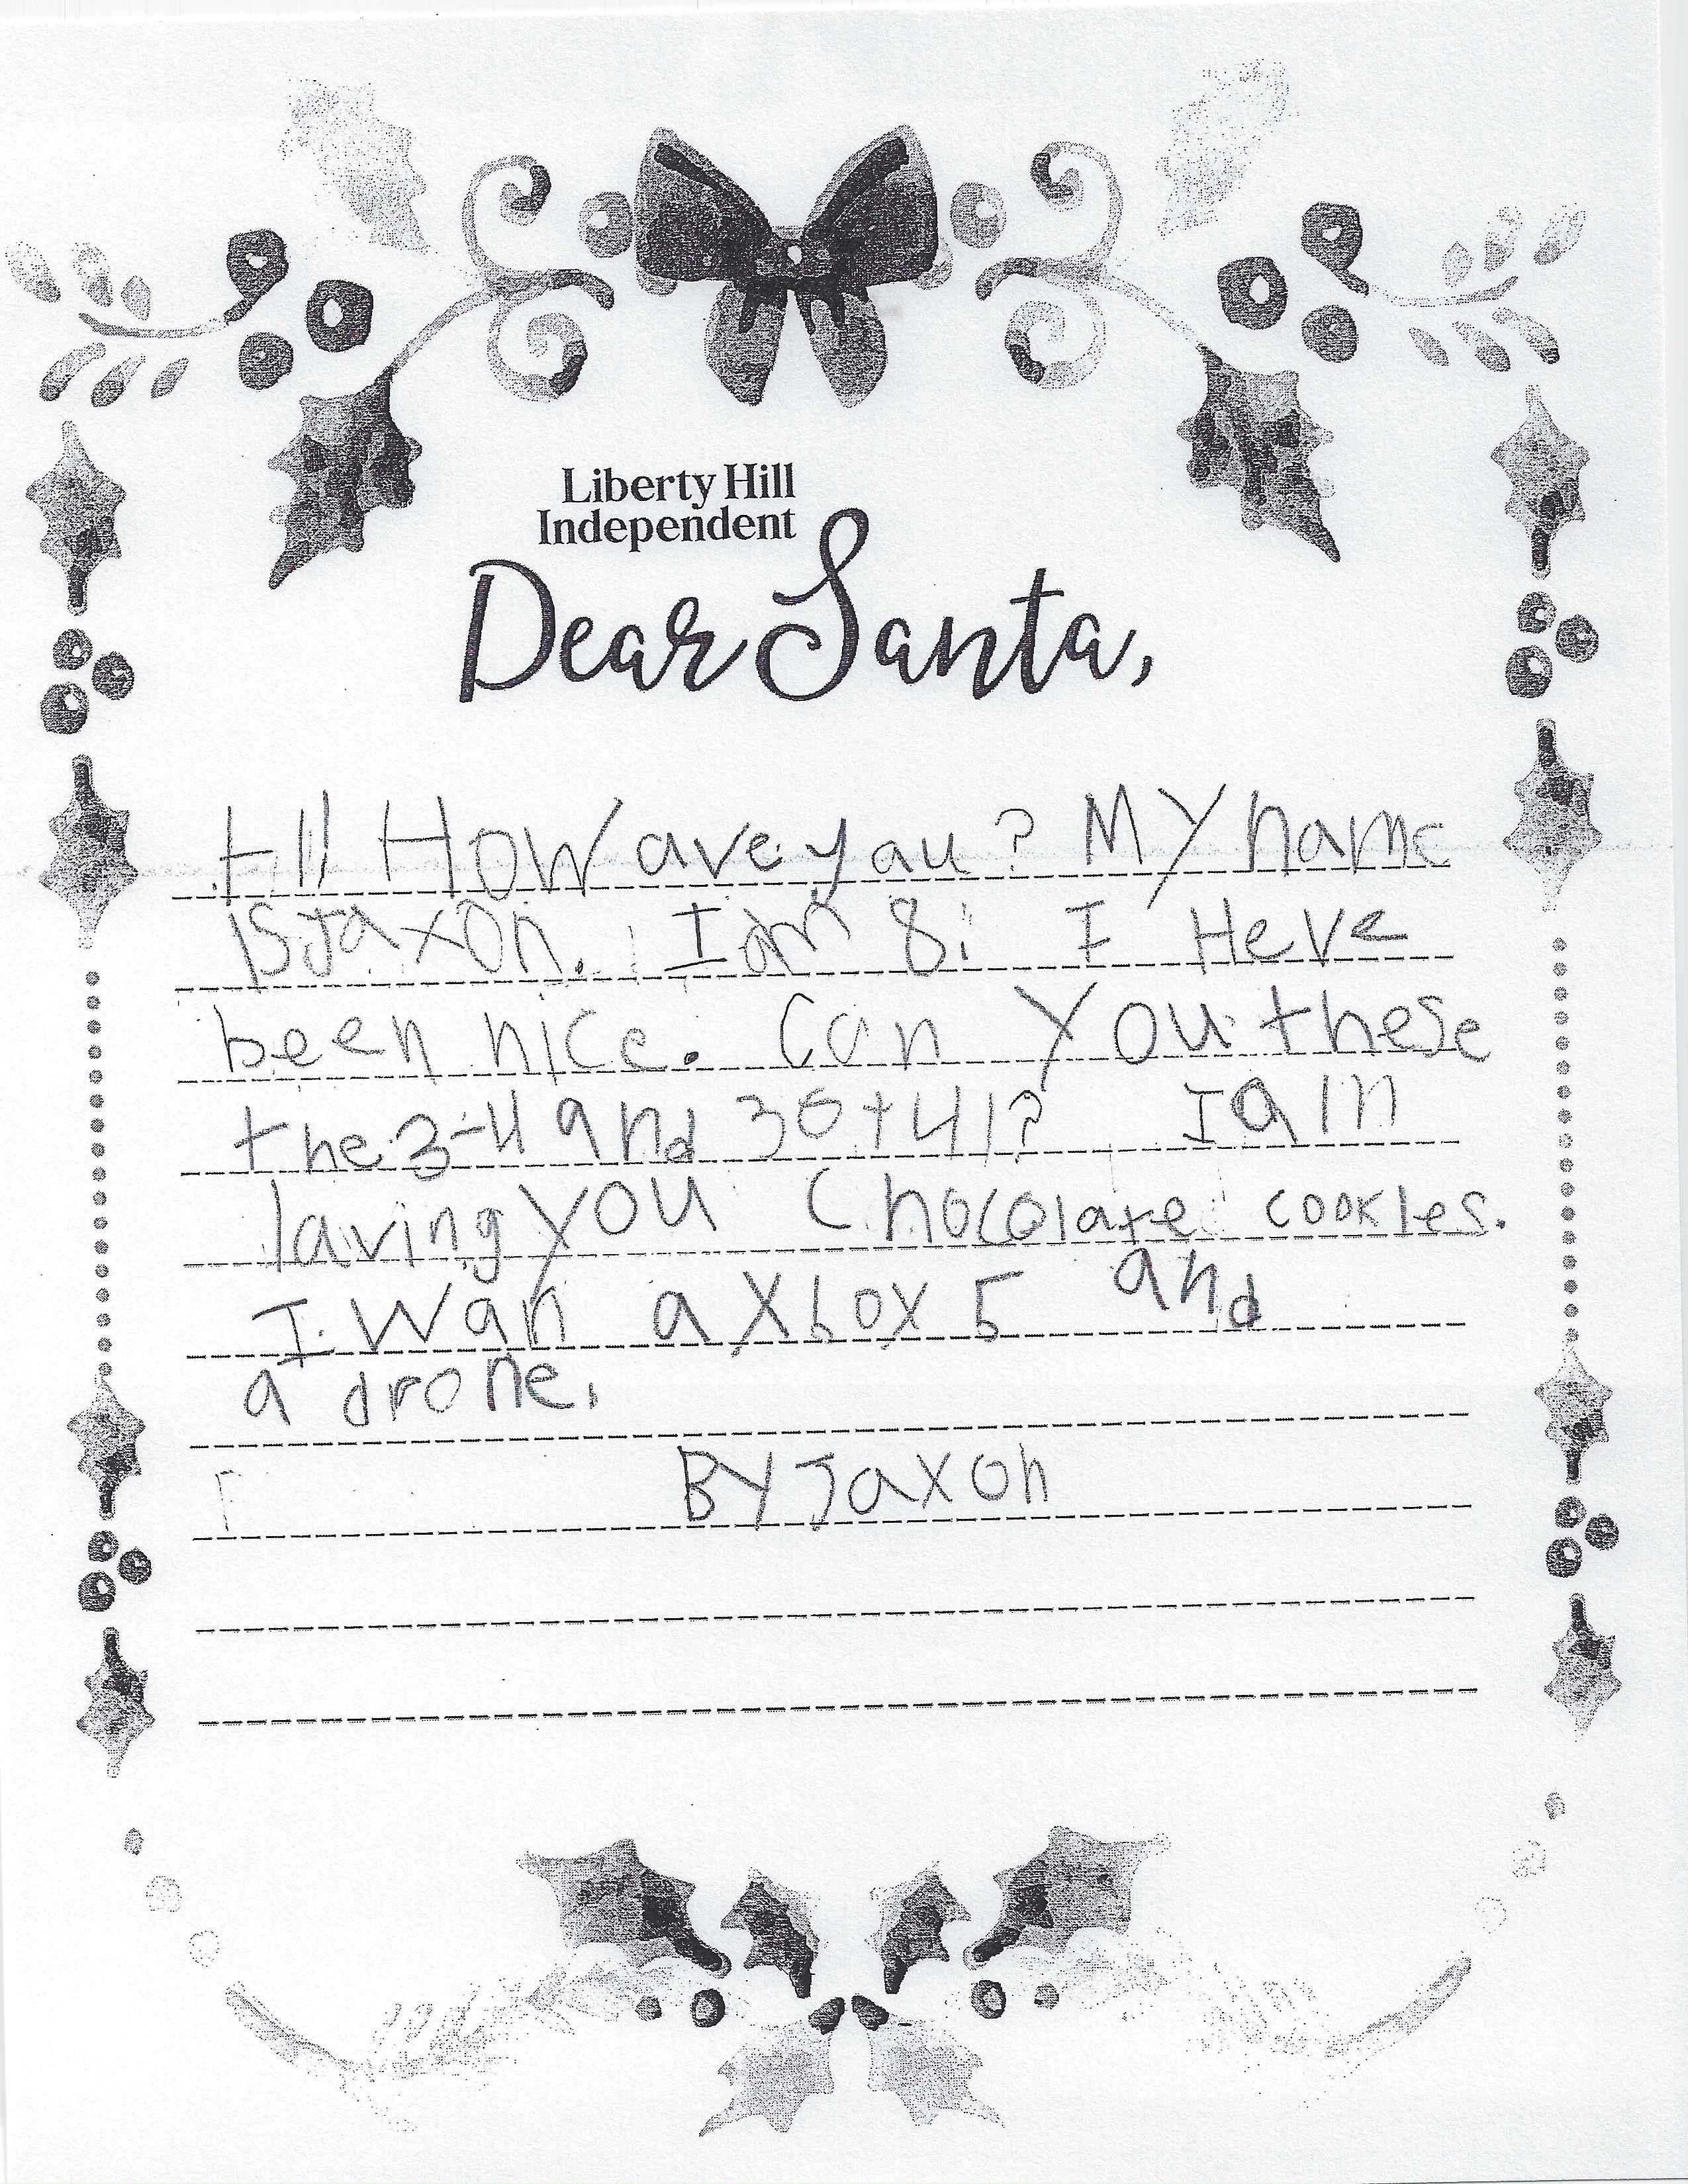 Liberty Hill
Independent
Dear Santa,
HI! HOW ave you? MY name
IS JaxOn. I am 8. I Heve
been nice. Can YOu these
the 3-4 and
I am
laving YOU Chocolate cookies.
I Wan a Xbox 5 and
a drone.
BY Jaxon